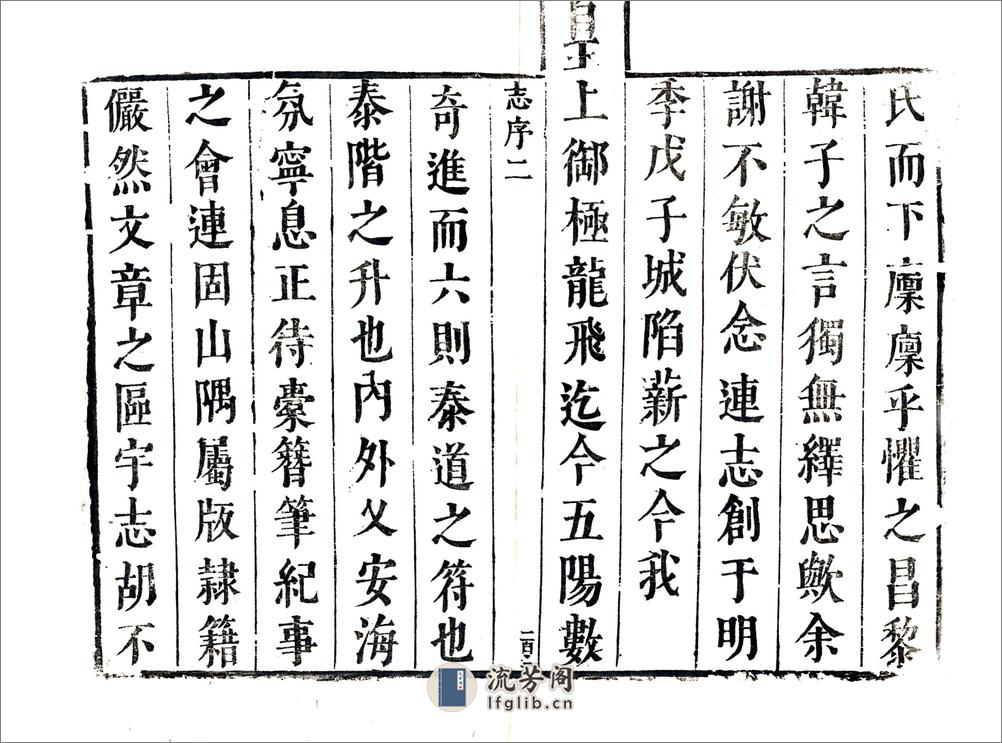 氏而下廩廩乎懼之昌黎
韓子之言獨無繹思歟余
謝不敏伏念連志創于明
季戊子城陷薪之今我
皇
上御極龍飛迄今五陽數
志序二
奇進而六則泰道之符也
泰階之升也內外乂安海
氛寧息正待橐簪筆紀事
之會連固山隅屬版隷籍
儼然文章之區宇志胡不
流芳阁
lfglib.cn